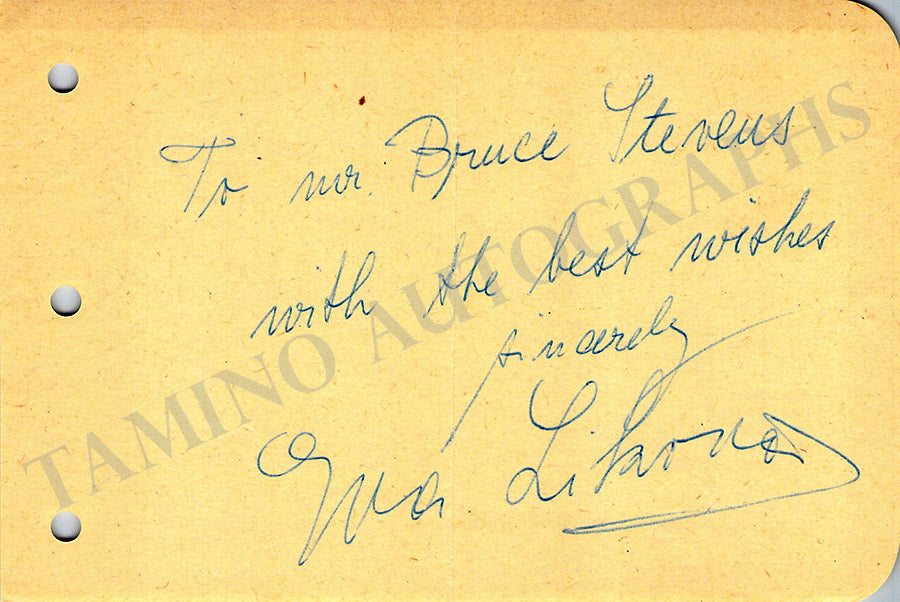 To mr. Bruce Stevens
with the best wishes
sincerely
Eva Likova
TAMINO AUTOGRAPHS